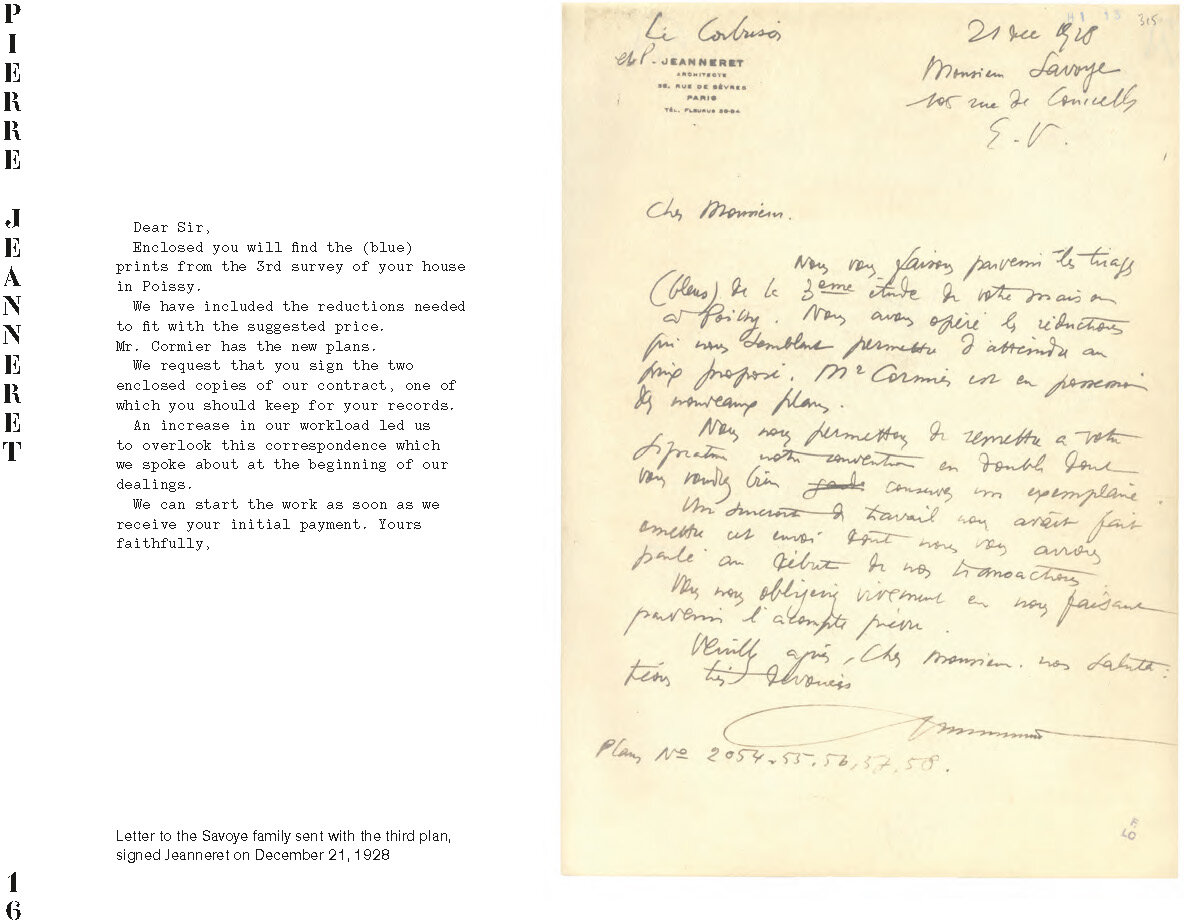 PIERRE JEANNERET
Dear Sir,
Enclosed you will find the (blue)
prints from the 3rd survey of your house
in Poissy.
We have included the reductions needed
to fit with the suggested price.
Mr. Cormier has the new plans.
We request that you sign the two
enclosed copies of our contract, one of
which you should keep for your records.
An increase in our workload led us
to overlook this correspondence which
we spoke about at the beginning of our
dealings.
We can start the work as soon as we
receive your initial payment. Yours
faithfully,
Letter to the Savoye family sent with the third plan,
signed Jeanneret on December 21, 1928
16
H1 13 315
Le Corbusier
et P. JEANNERET
ARCHITECTE
35, RUE DE SÈVRES
PARIS
TÉL. FLEURUS
21 dec 1928
Monsieur Savoye
105 rue de Courcelles
E.V.
Cher Monsieur.
Nous vous faisons parvenir les tirages
(bleus) de la 3ème étude de votre maison
à Poissy. Nous avons opéré les réductions
qui nous semblent permettre d'atteindre au
prix proposé. Mr Cormier est en possession
des nouveaux plans.
Nous nous permettons de remettre à votre
signature notre convention en double dont
vous voudrez bien conserver un exemplaire.
Un surcroit de travail nous avait fait
omettre cet envoi dont nous vous avions
parlé au début de nos transactions
Vous nous obligeriez vivement en nous faisant
parvenir l'acompte prévu.
Veuillez agréer, Cher Monsieur. nos saluta:
tions très dévouées
Plans No 2054.55.56.57.58.